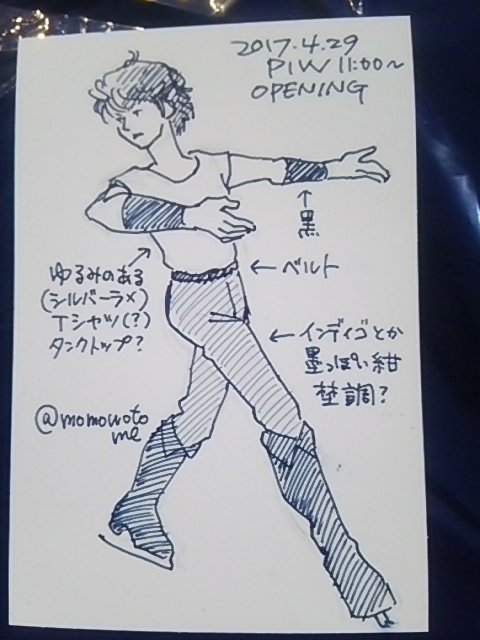 2017.4.29
PIW 11:00~
OPENING
↑
黒
ゆるみのある
(シルバーラメ)
Tシャツ(?)
タンクトップ?
← ベルト
← インディゴとか
墨っぽい紺
杢調?
@momowoto
me